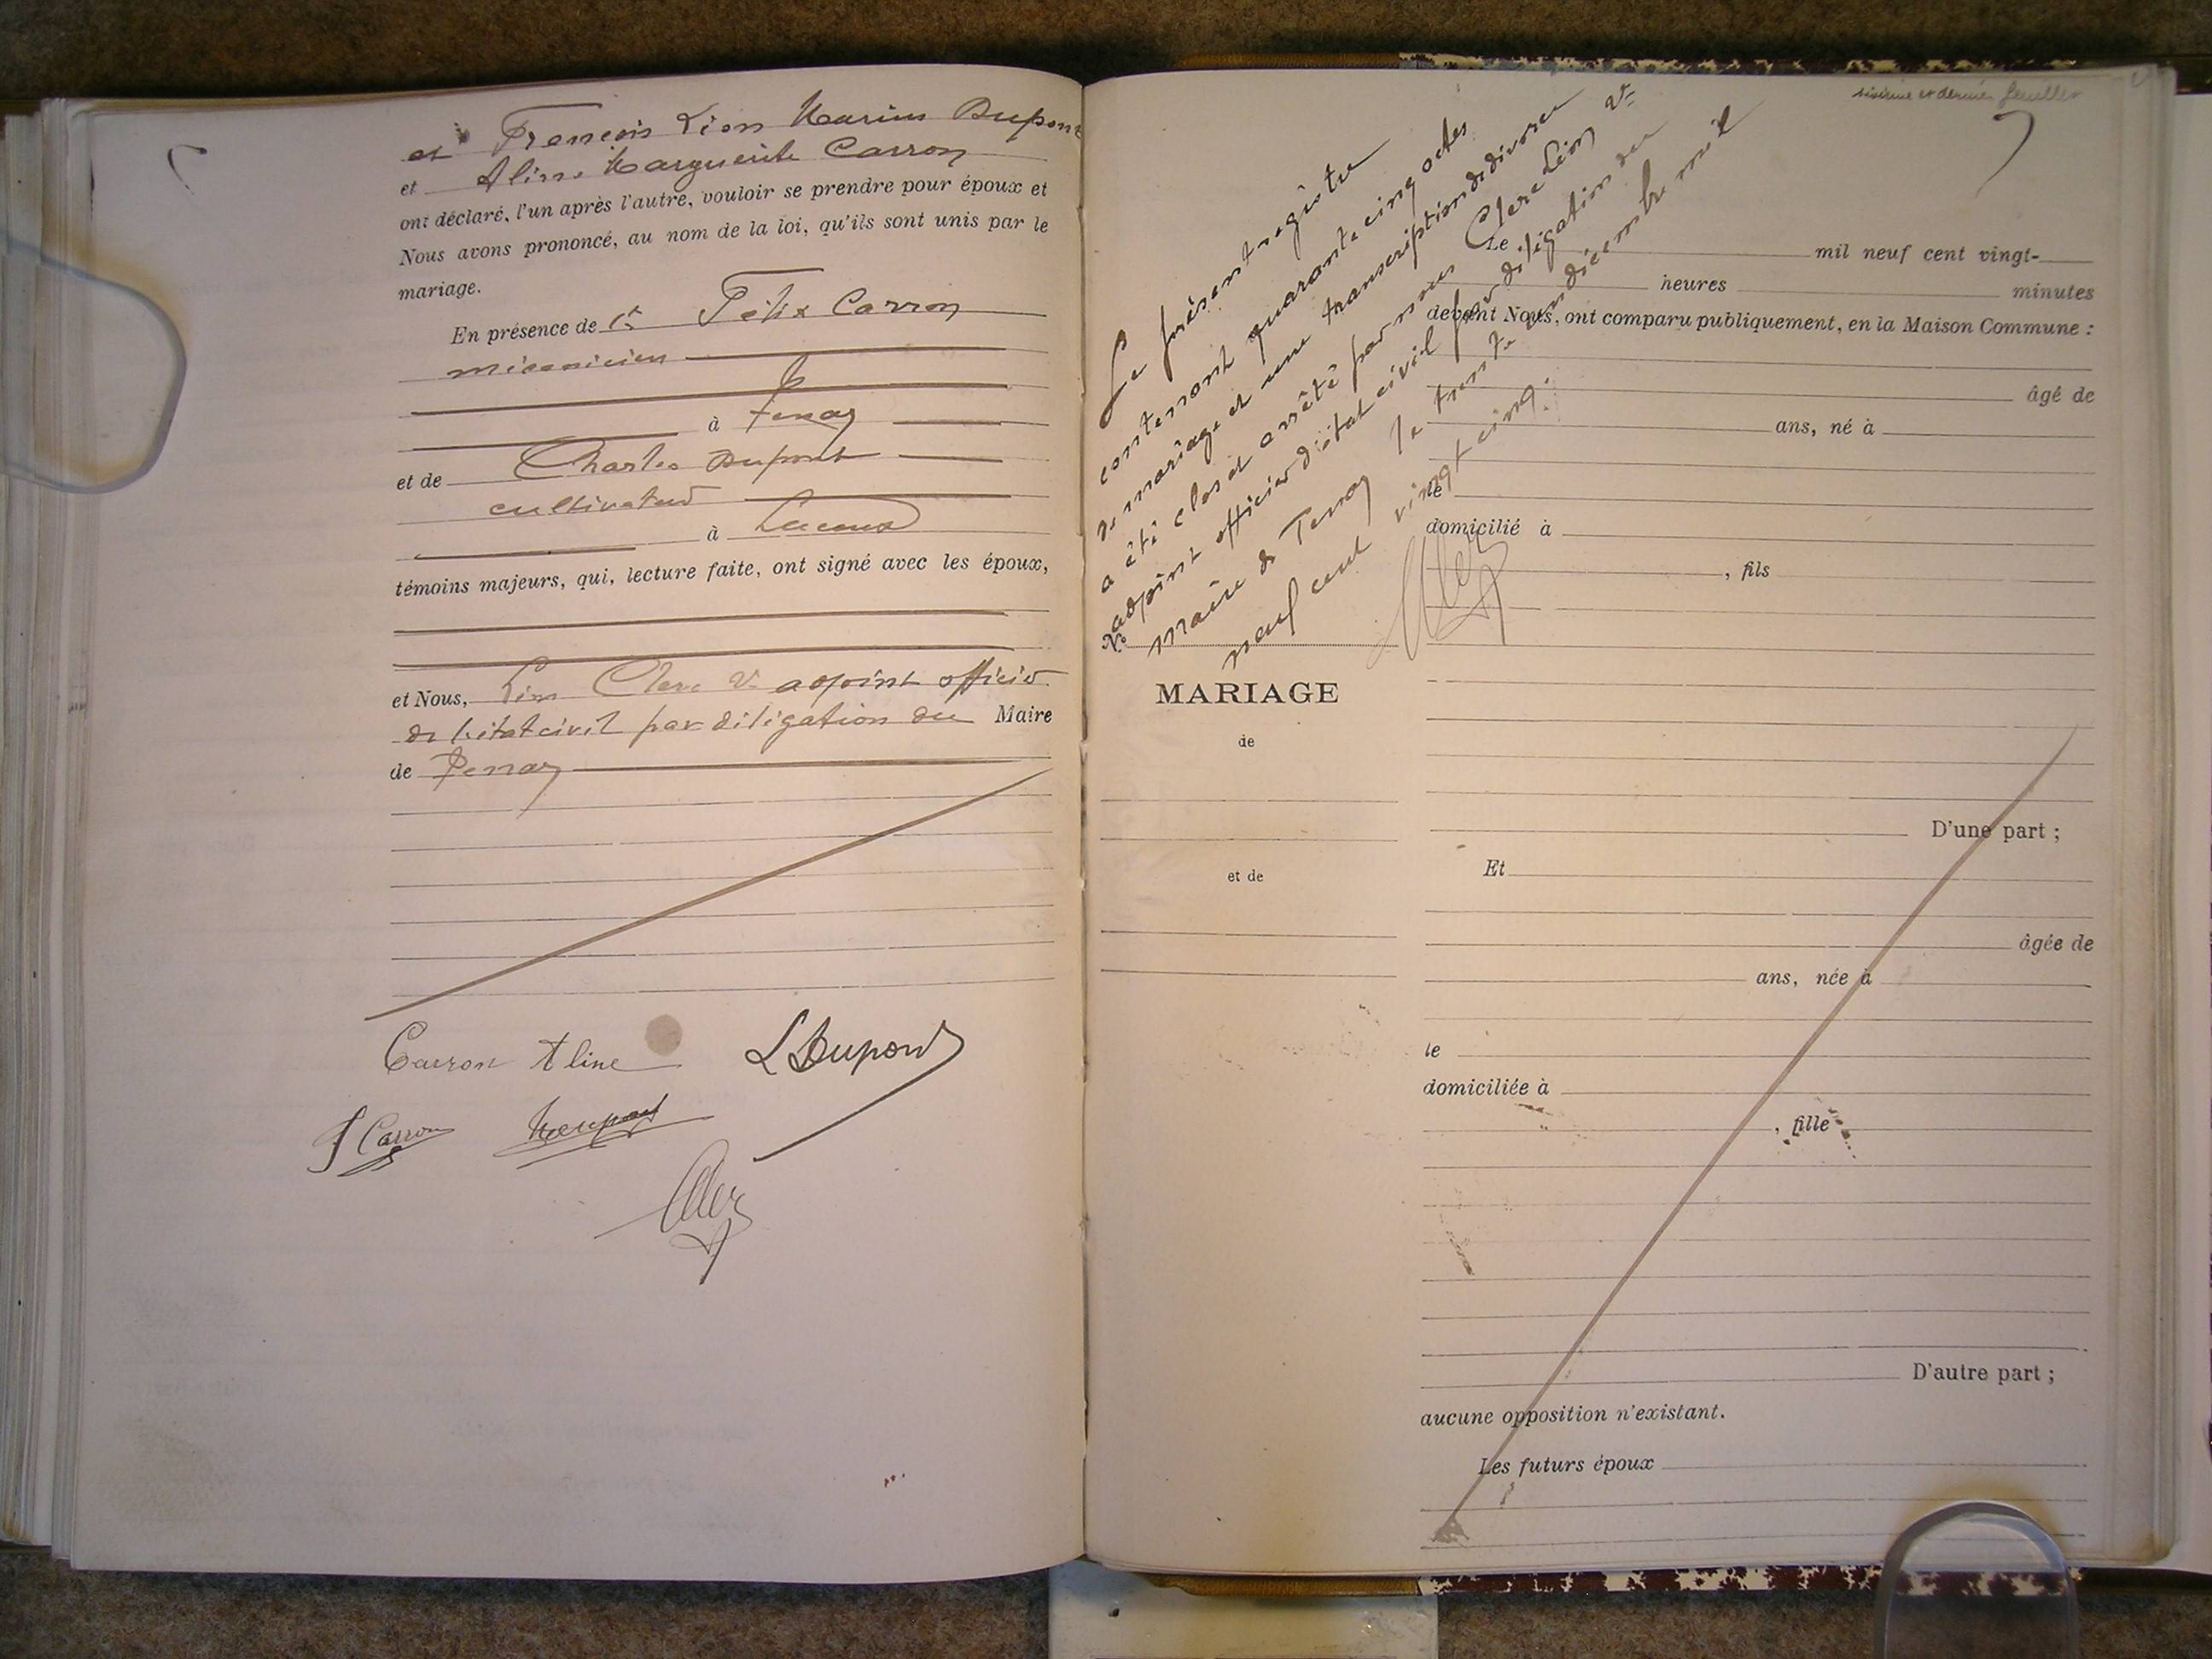 et François Léon Marius Dupont
et Aline Marguerite Carron
ont déclaré, l'un après l'autre, vouloir se prendre pour époux et
Nous avons prononcé, au nom de la loi, qu'ils sont unis par le
mariage.
En présence de Félix Carron
mécanicien
à Tenay
et de Charles Dupont
cultivateur
à Lacoux
témoins majeurs, qui, lecture faite, ont signé avec les époux,
et Nous, Léon Clerc adjoint officier
de l'état civil par délégation du Maire
de Tenay
Carron Aline LDupont
F Carron
Clerc
sixième et dernier feuillet
Le présent registre
contenant quarante cinq actes
de mariage et une transcription de divorce
a été clos et arrêté par nous Clerc Léon
adjoint officier d'état civil par délégation du
maire de Tenay le trente un décembre mil
neuf cent vingt cinq.
Clerc
N°
MARIAGE
de
et de
Le mil neuf cent vingt-
heures minutes
devant Nous, ont comparu publiquement, en la Maison Commune :
âgé de
ans, né à
le
domicilié à
, fils
D'une part ;
Et
âgée de
ans, née à
le
domiciliée à
, fille
D'autre part ;
aucune opposition n'existant.
Les futurs époux